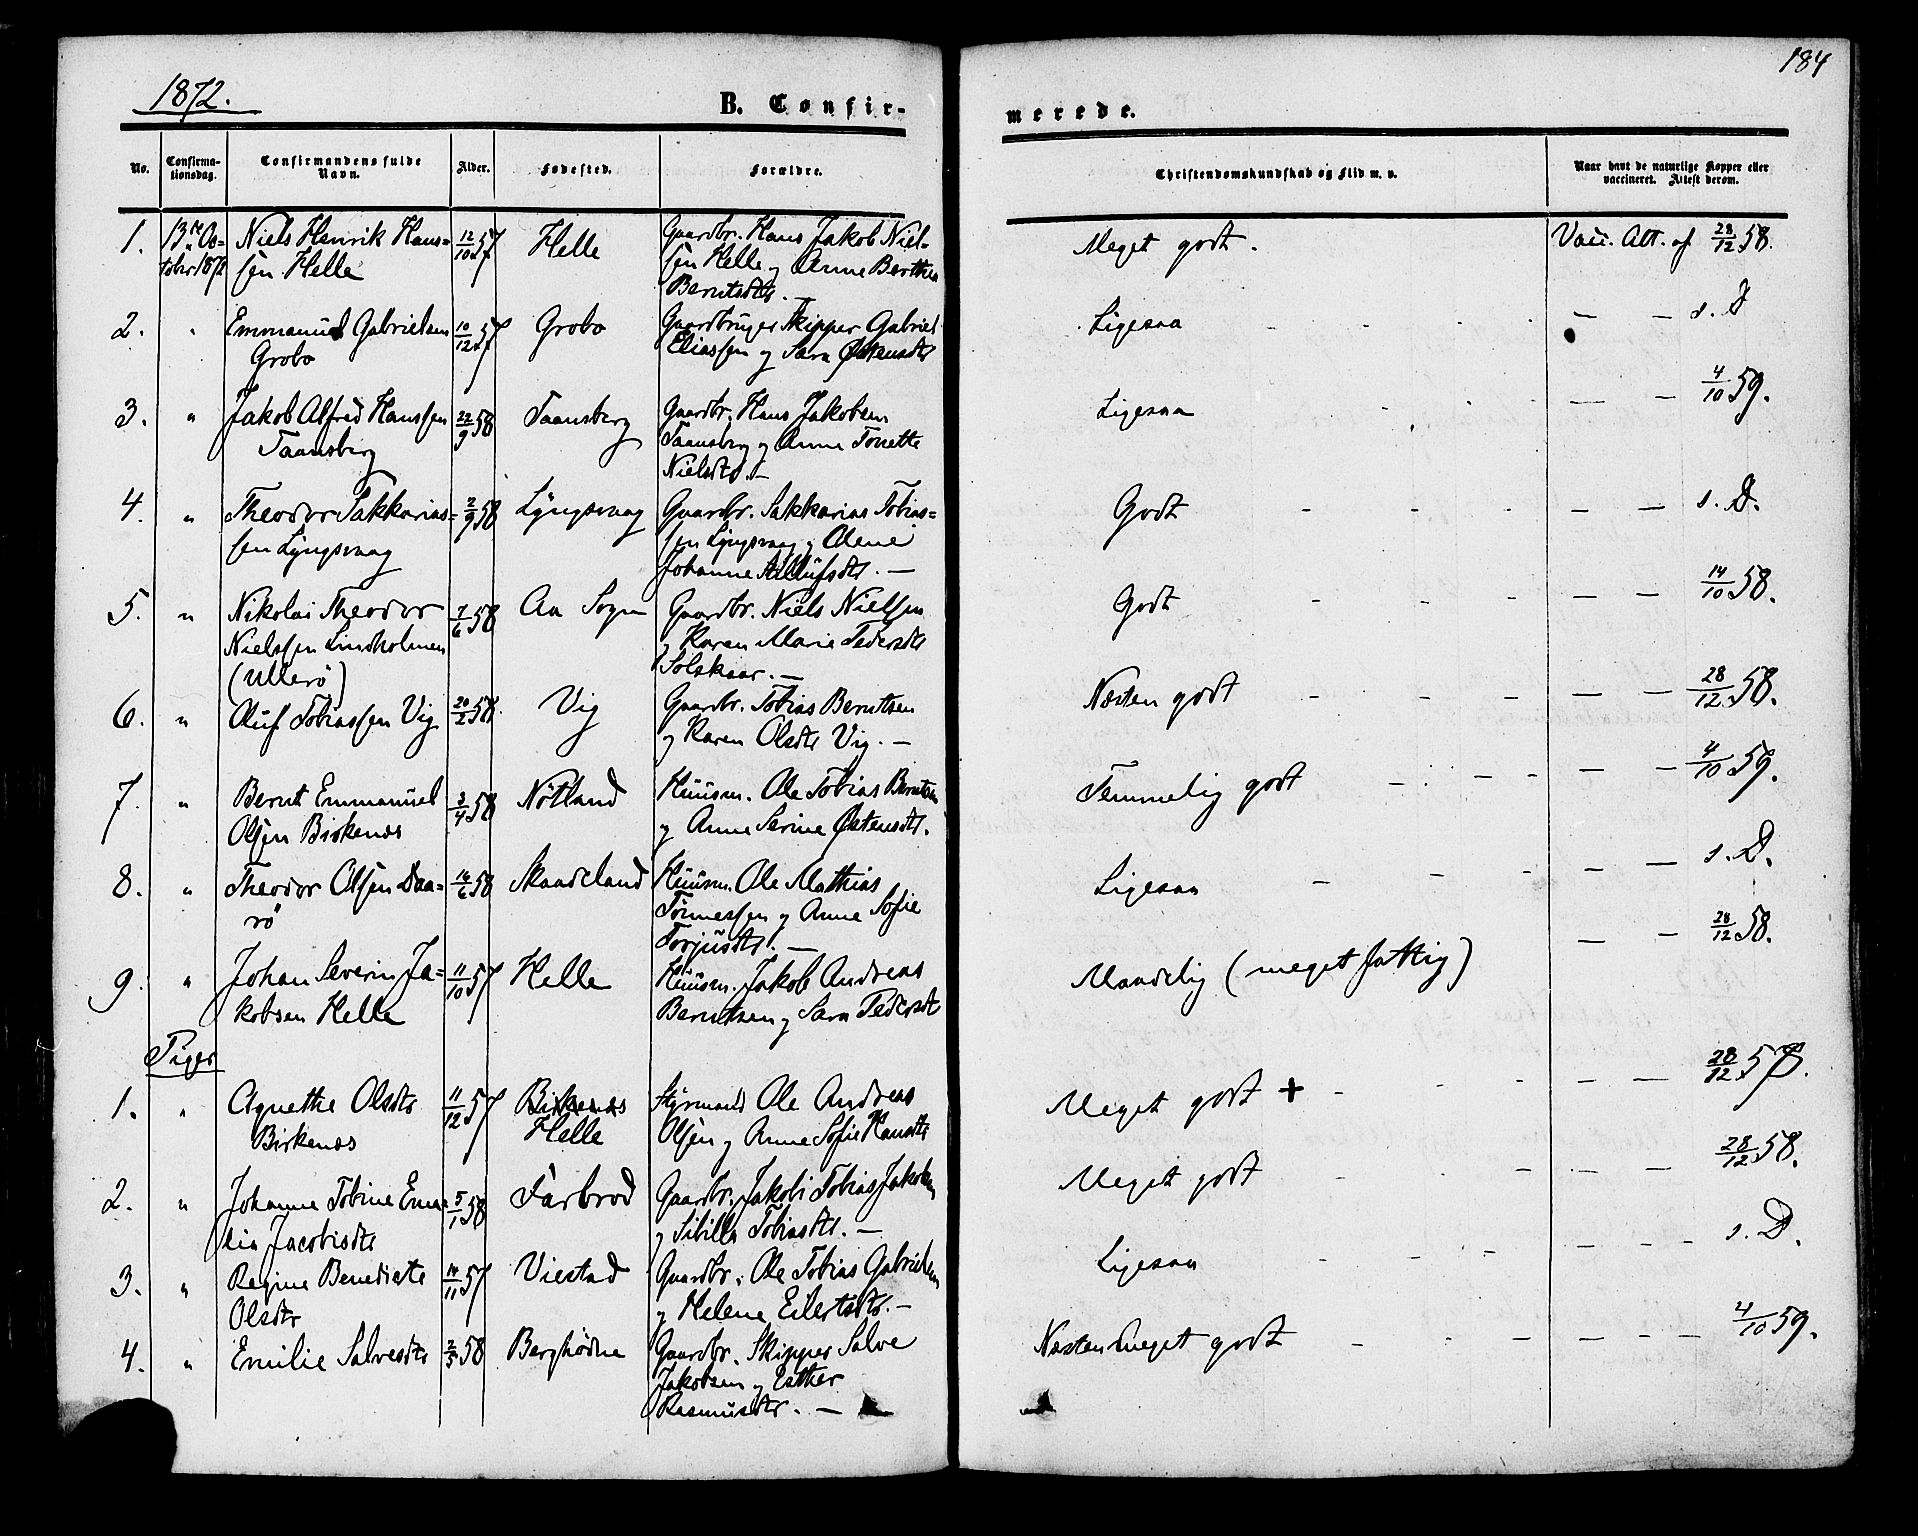 184
1872.
B. Confir-
merede.
No.
Confirma-
tionsdag.
Confirmandens fulde
Navn.
Alder.
Fødested.
Forældre.
Christendomskundskab og Flid m. v.
Naar havt de naturlige Kopper eller
vaccineret. Attest derom.
1. 13de Oc- Niels Henrik Hans= 12/10 57 Helle Gaardbr. Hans Jakob Niel- Meget godt. Vacc. Att. af 28/12 58.
tobr 1872 sen Helle sen Helle og Anne Berthea
Berntsdtr. —
2. " Emmanuel Gabrielsen 10/12 57 Grobo Gaardbruger Skipper Gabriel Ligesaa - - - - — — s. D
Grobo Eliassen og Sara Østensdtr
3. " Jakob Alfred Hanssen 22/9 58 Taansberg Gaardbr. Hans Jakobsen Ligesaa - - - — — 4/10 59.
Taansberg Taansberg og Anne Tonette
Nielsdtr. —
4. " Theodor Sakkarias= 2/9 58 Lyngsvaag Gaardbr. Sakkarias Tobias= Godt - - - — — s. D.
sen Lyngsvaag sen Lyngsvaag og Olene
Johanne dtr. —
5. " Nikolai Theodor 7/6 58 Aa Sogn Gaardbr. Niels Nielsen Godt - - - — — 14/10 58.
Nielssen Lindholmen og Karen Marie Pedersdtr
(Ullerø) Solskaar. —
6. " Oluf Tobiassen Vig 20/2 58. Vig Gaardbr. Tobias Berntsen Næsten godt - - - — — 28/12 58.
og Karen Olsdtr Vig. —
7. " Bernt Emmanuel 3/4 58 Nøtland Huusm. Ole Tobias Berntsen Temmelig godt - - - — — 4/10 59.
Olsen Birkenes og Anne Serine Østensdtr.
8. " Theodor Olsen Daa= 16/6 58 Skaadeland Huusm. Ole Mathias Ligesaa - - - — — s. D.
rø Tønnessen og Anne Sofie
Torjusdtr. —
9. " Johan Severin Ja= 11/10 57 Helle Huusm. Jakob Andreas Maadelig (meget fattig) — — 28/12 58.
kobsen Helle Berntsen og Sara Pedersdt
Piger
1. " Agnethe Olsdtr 11/12 57 Birkenes Styrmand Ole Andreas Meget godt + - - - — — 28/12 58.
Birkenes Helle Olsen og Anne Sofie Hansdtr
2. " Johanne Tobine Eme= 5/1 58 Farbrod Gaardbr. Jakob Tobias Jakobsen Meget godt - - - — — 28/12 58.
lia Jacobsdtr og Sibille Tobiasdtr. —
3. " Regine Benedicte 14/11 57 Viestad Gaardbr. Ole Tobias Gabrielsen Ligesaa - - - — — s. D.
Olsdtr og Helene Eilertsdtr. —
4. " Emilie Salvesdtr 2/5 58 Berghødne Gaardbr. Skipper Salve Næsten meget godt - - - — — 4/10 59.
Jakobsen og Esther
Rasmusdtr. —